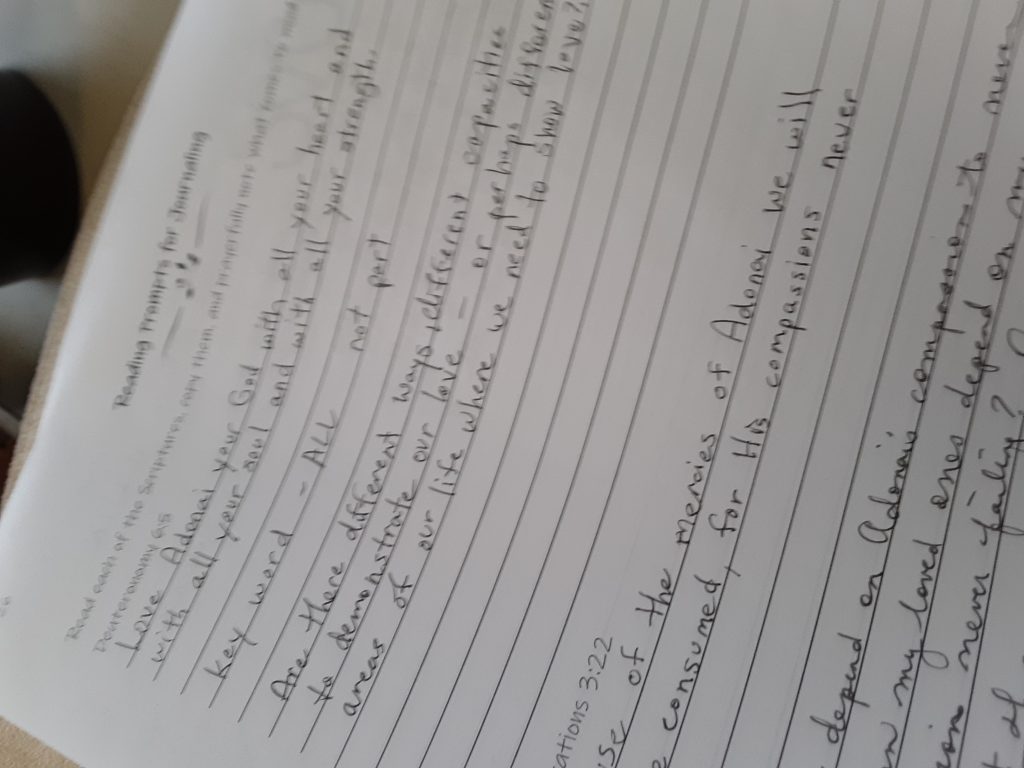 Reading Prompts for Journaling
Read each of the Scriptures, copy them, and prayerfully write what comes to mind
Deuteronomy 6:5
Love Adonai your God with all your heart and
with all your soul and with all your strength.
Key word - ALL not part
Are there different ways + different capacities
to demonstrate our love - or perhaps different
areas of our life where we need to show love?
ations 3:22
use of the mercies of Adonai we will
e consumed, for His compassions never
depend on Adonai's
my loved ones depend on
never failing?
of